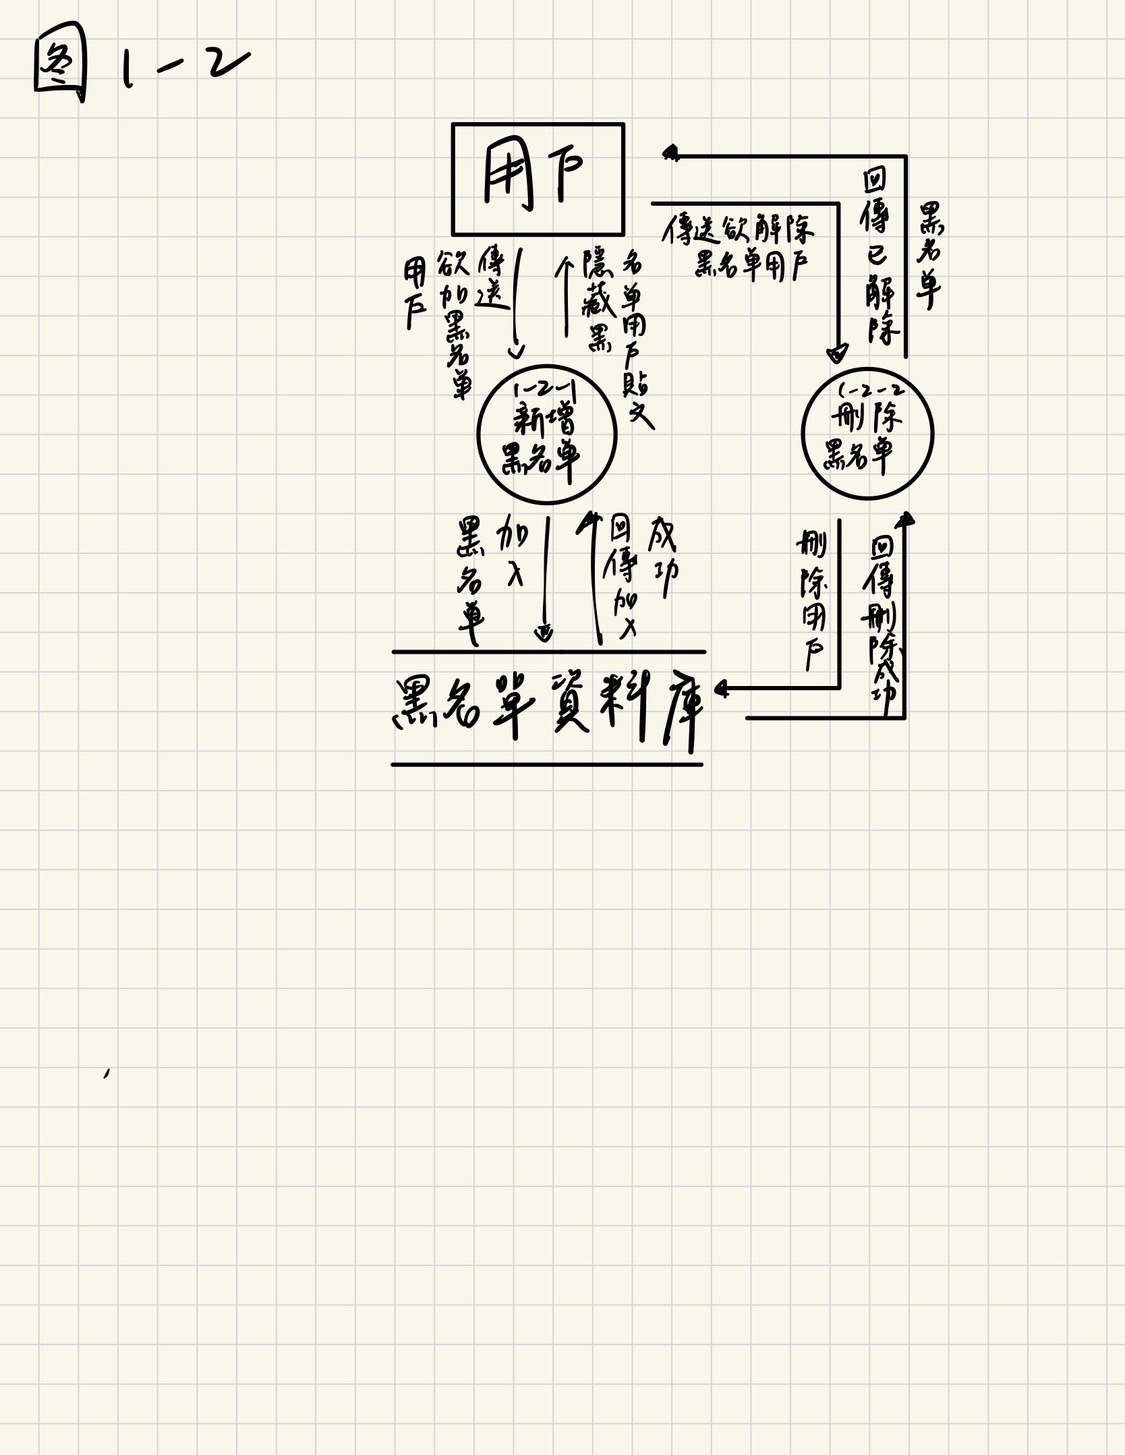 图 1-2
用戶
傳送
欲加黑名單
用戶
隱藏黑
名單用戶貼文
傳送欲解除
黑名單用戶
回傳已解除
黑名單
1-2-1
新增
黑名單
1-2-2
刪除
黑名單
加入
黑名單
回傳加入
成功
刪除用戶
回傳刪除成功
黑名單資料庫